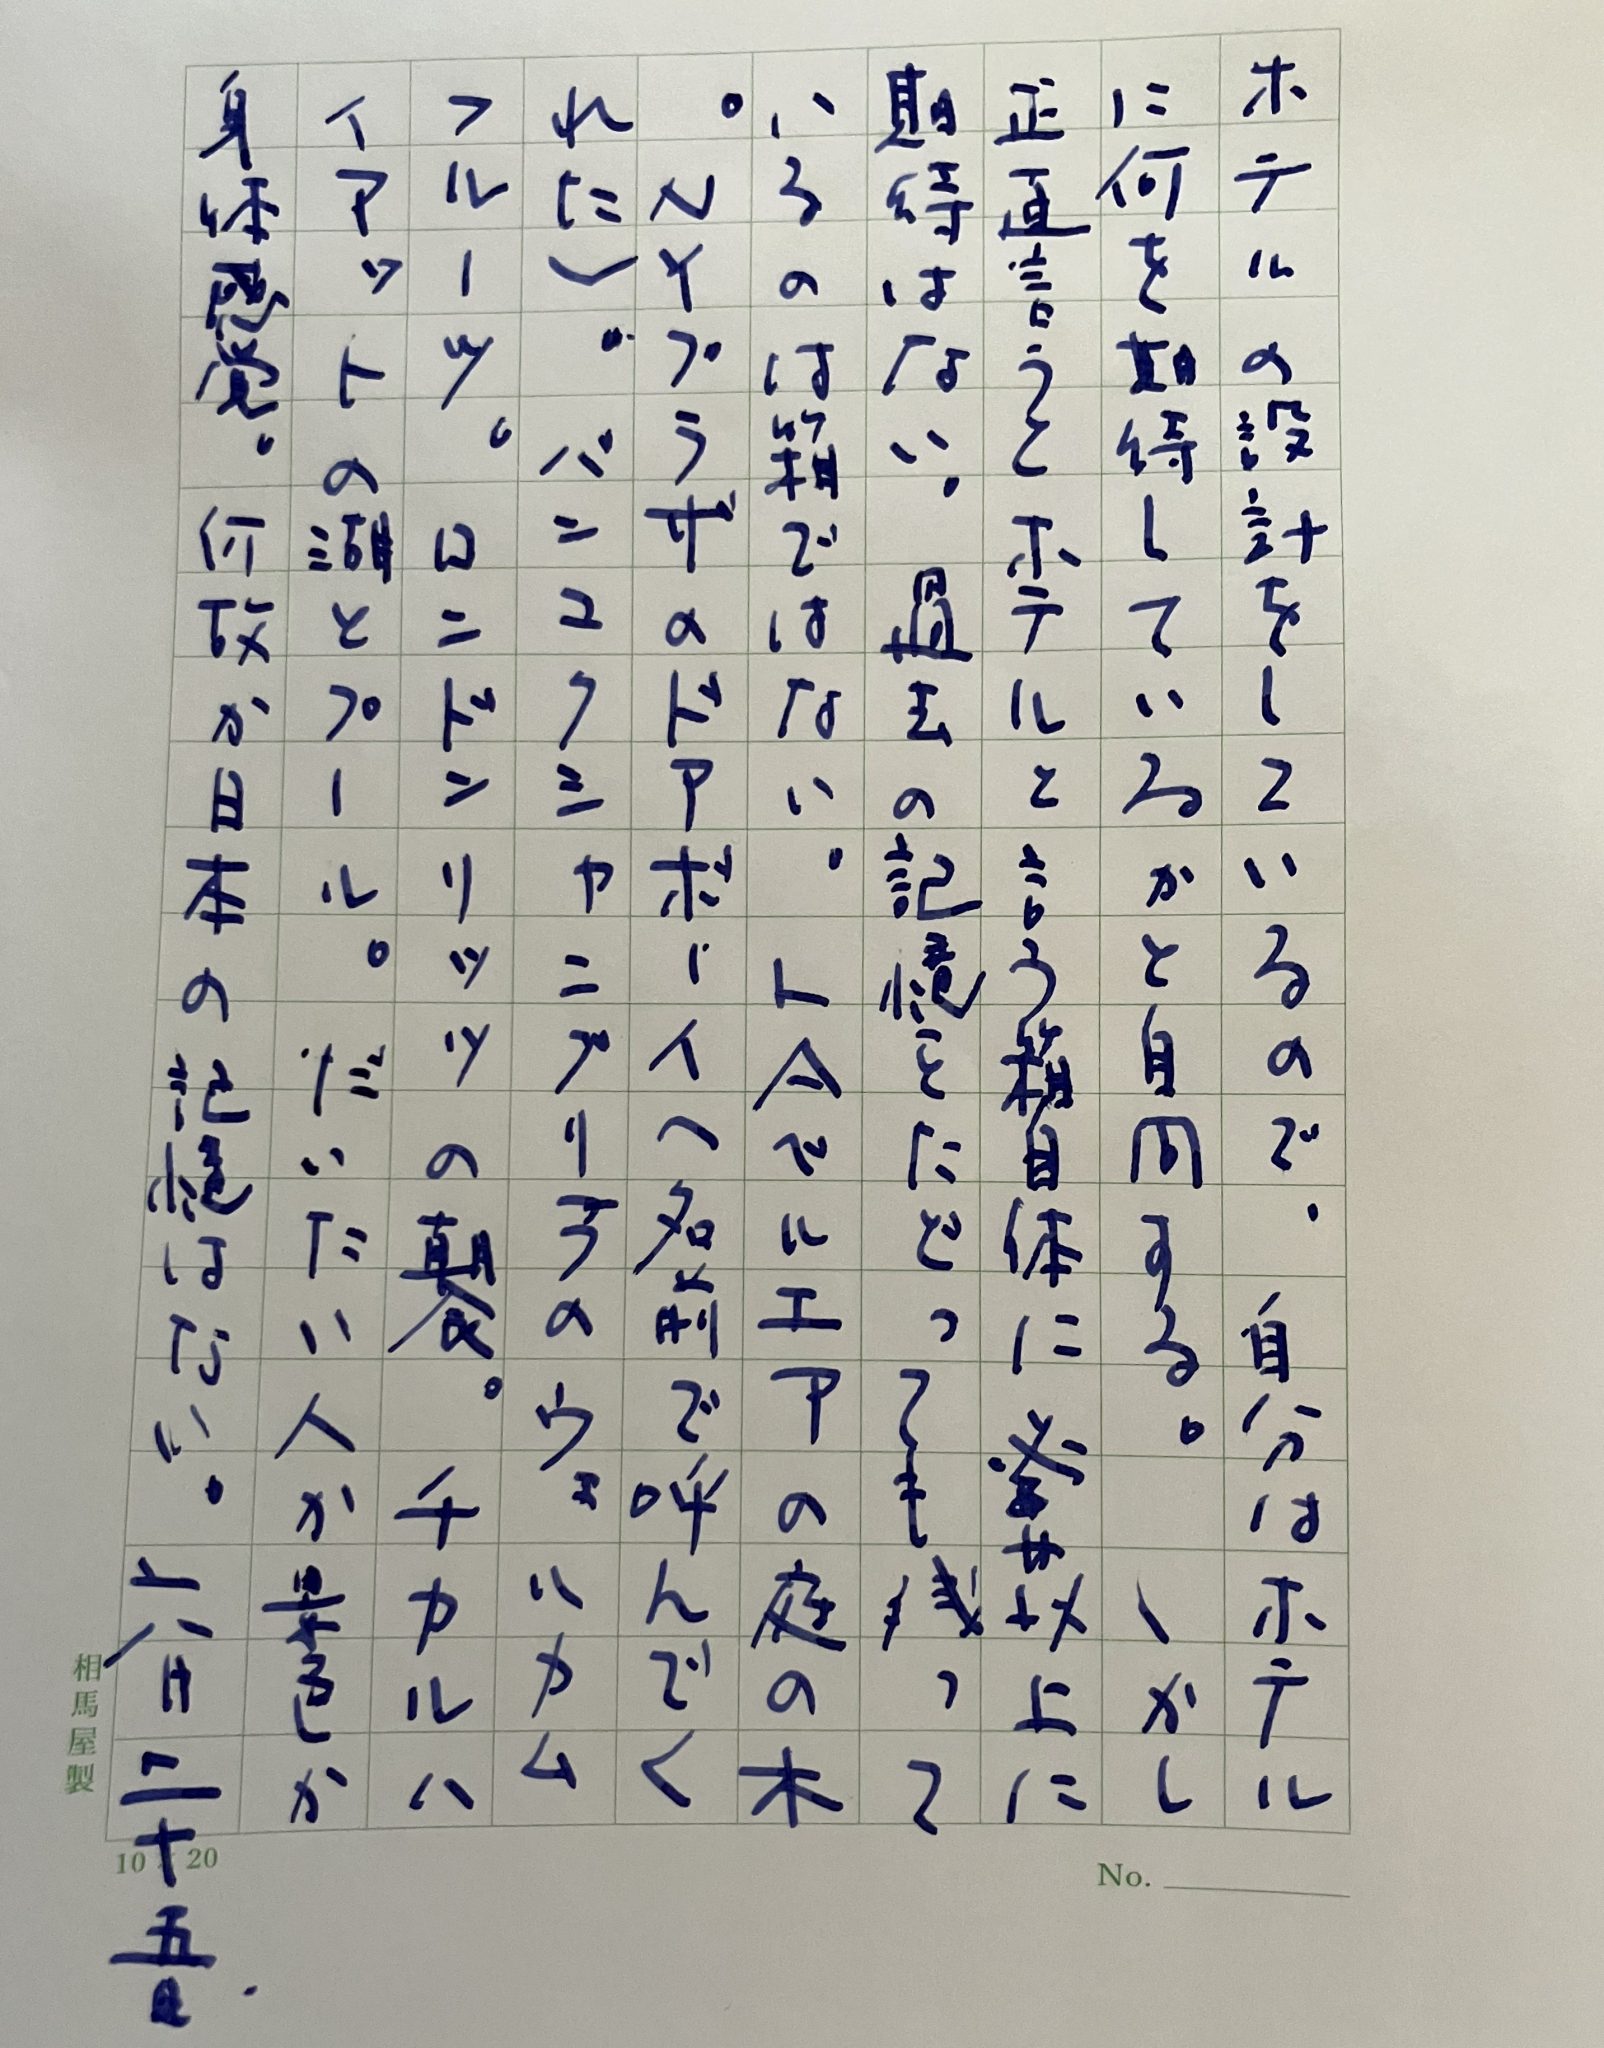 ホテルの設計をしているので、自分はホテル
に何を期待しているかと自問する。しかし
正直言うとホテルと言う箱自体に必要以上に
期待はない。過去の記憶をたどっても残って
いるのは箱ではない。トムでルエアの庭の木
。ペイプラザのドアボーイへ名前で呼んでく
れた)。バンコクシャニプリラのヴェハカム
フルーツ。ロンドンリッツの朝食。チカルハ
イアットの湖とプール。だいたい人か景色か
身体感覚。何故か日本の記憶はない。 六月二十五日.
相馬屋製
10 × 20
No.